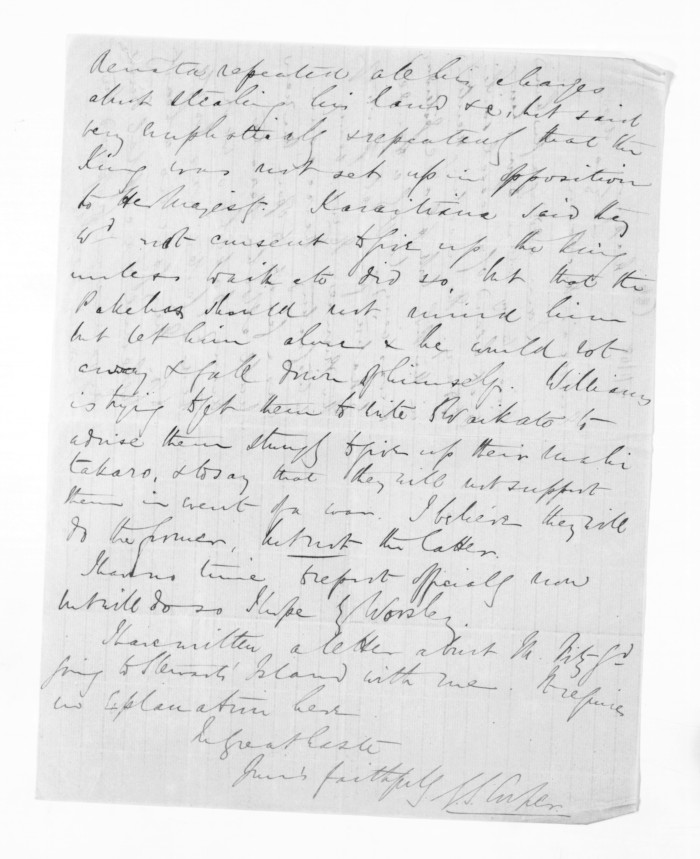 Renata repeated all his charges
about stealing his land &c, but said
very emphatically & repeatedly that the
King was not set up in opposition
to Her Majesty. Karaitiana said they
wd not consent to give up the King
unless Waikato did so, but that the
Pakehas should not mind him
but let him alone & he would rot
away & fall down of himself. Williams
is trying to get them to write to Waikato to
advise them strongly to give up their mahi
takaro, & to say that they will not support
them in event of a war. I believe they will
do the former, but not the latter.
I have no time to report officially now
but will do so I hope by Worsley.
I have written a letter about M. Fitz Gd
going to Stewart's Island with me. It requires
no explanation here
In great haste
Yours faithfully G S Cooper